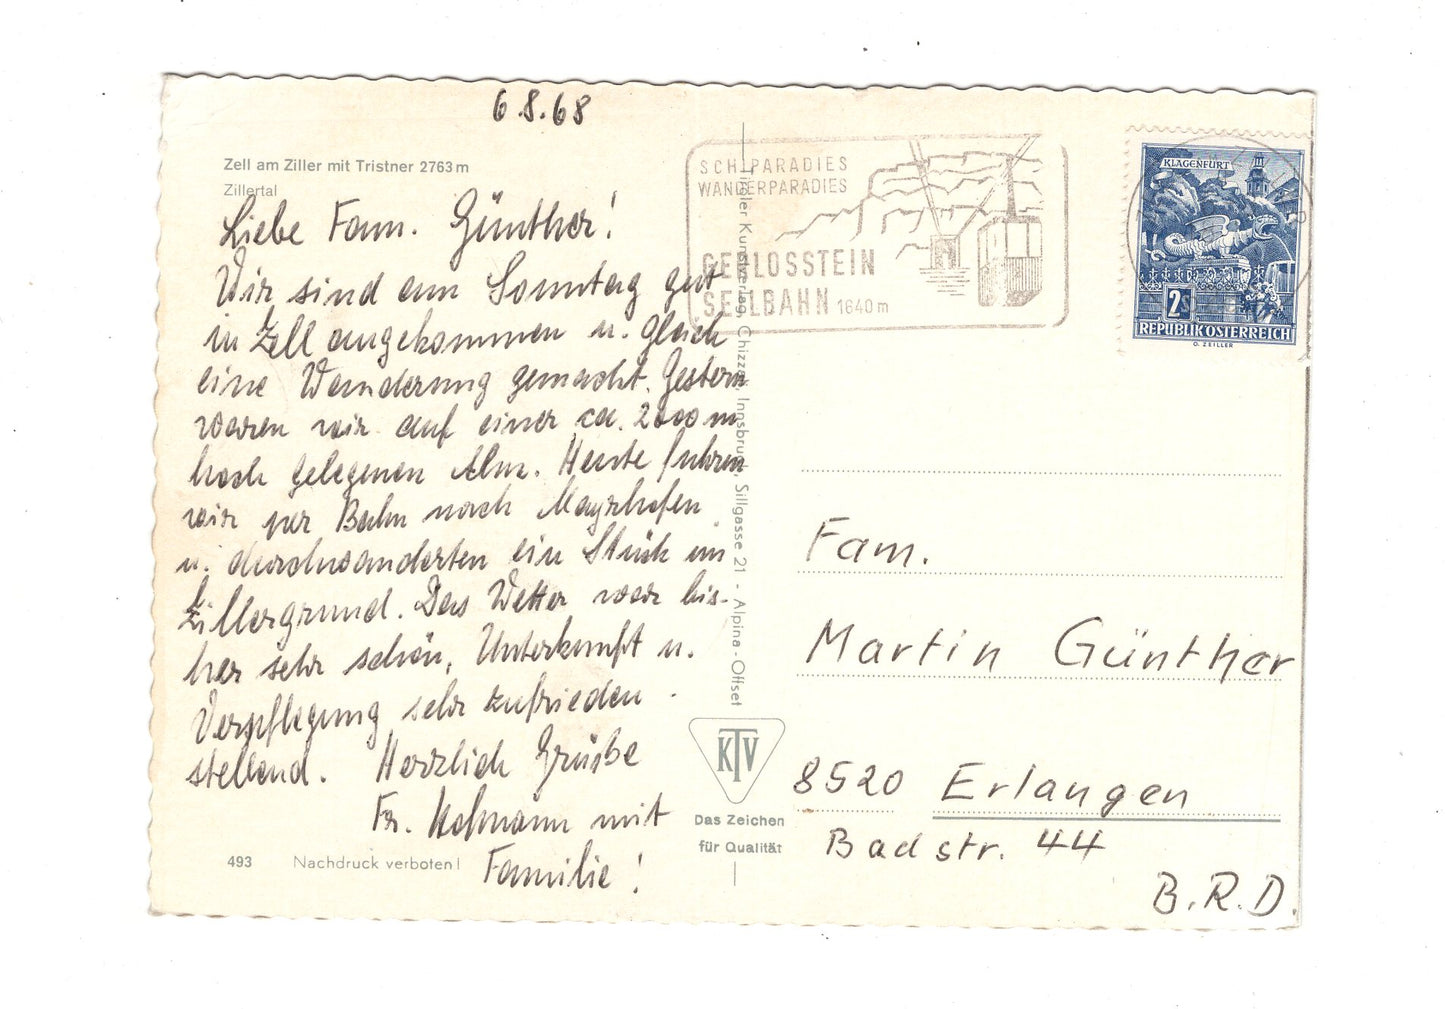 6.8.68
Zell am Ziller mit Tristner 2763 m
Zillertal
Liebe Fam. Günther!
Wir sind am Sonntag gut
in Zell angekommen u. gleich
eine Wanderung gemacht. Gestern
waren wir auf einer ca. 2000 m
hoch gelegenen Alm. Heute fuhren
wir per Bahn nach Mayrhofen
u. durchwanderten ein Stück im
Zillergrund. Das Wetter war bis-
her sehr schön, Unterkunft u.
Verpflegung sehr zufrieden
stellend. Herzlich Grüße
Fr. Hofmann mit
Familie!
493 Nachdruck verboten!
Tiroler Kunstverlag, Chizzali, Innsbruck, Sillgasse 21 - Alpina-Offset
KTV
Das Zeichen
für Qualität
SCHIPARADIES
WANDERPARADIES
GERLOSSTEIN
SEILBAHN 1640 m
KLAGENFURT
2S
REPUBLIK ÖSTERREICH
O. ZEILLER
Fam.
Martin Günther
8520 Erlangen
Badstr. 44
B.R.D.